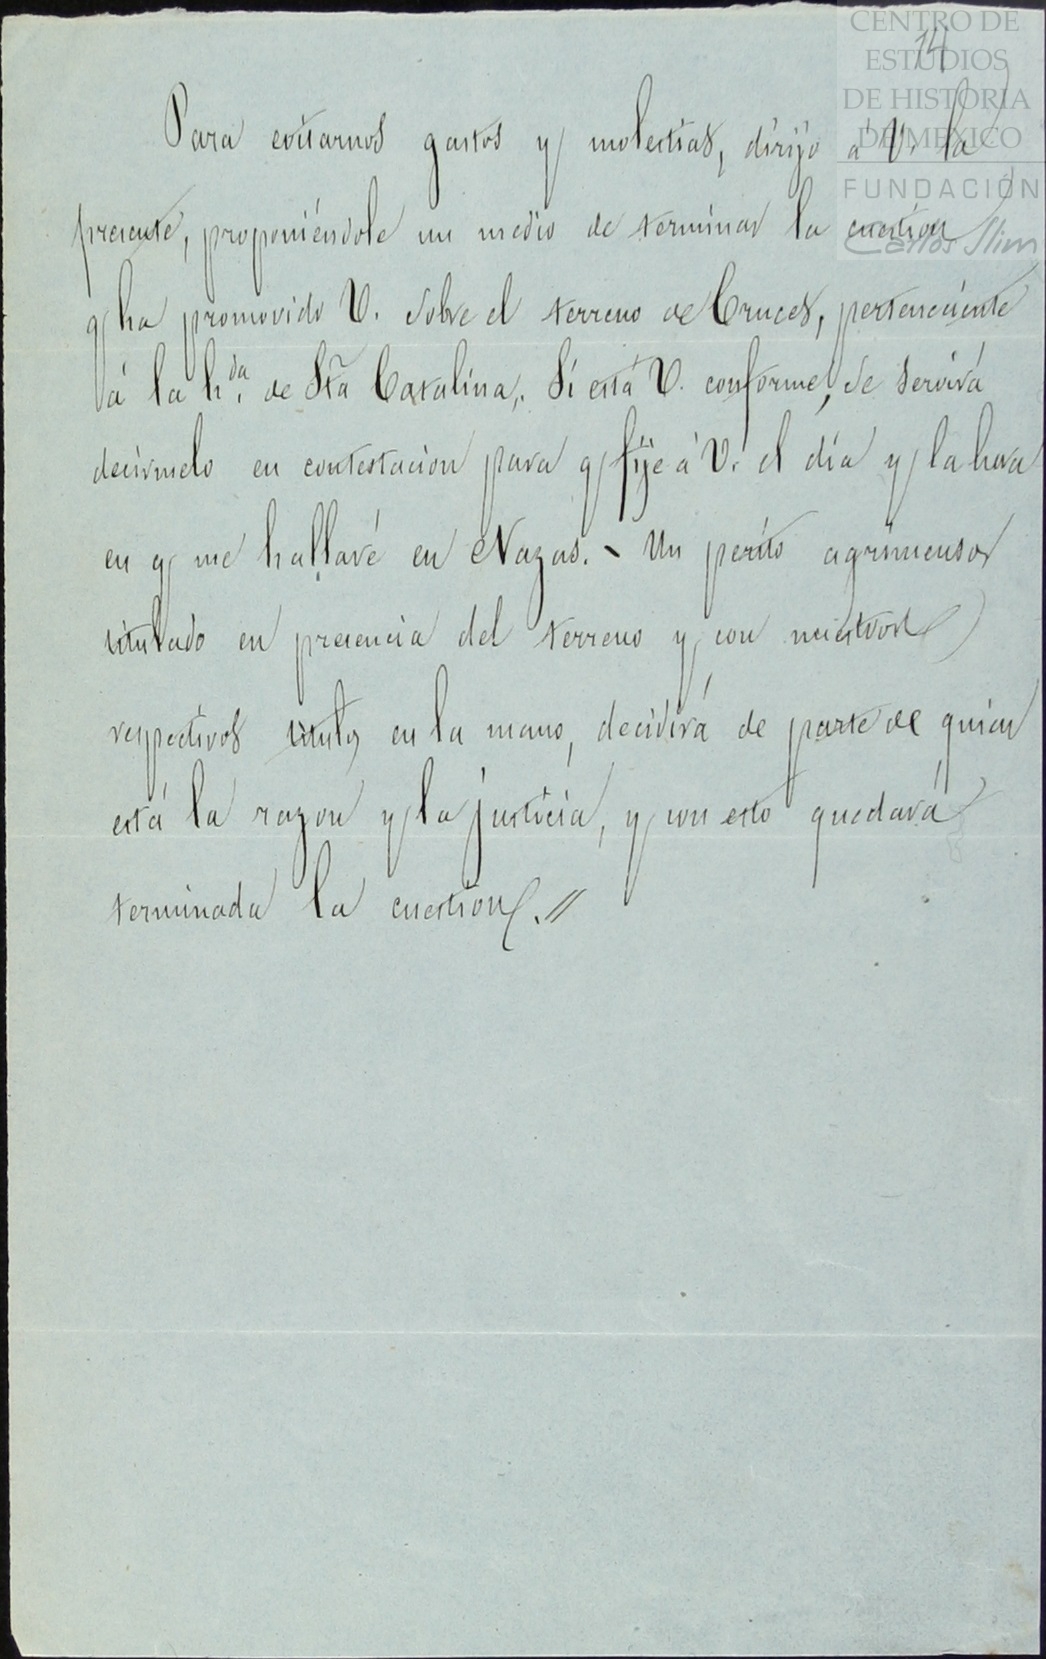 CENTRO DE
ESTUDIOS
DE HISTORIA
DE MEXICO
FUNDACIÓN
Carlos Slim
14
Para evitarnos gastos y molestias, dirijo á V. la
presente, proponiéndole un medio de terminar la cuestion
q ha promovido V. sobre el terreno de Cruces, perteneciente
á la h.da de Sta Catalina,. Si está V. conforme, se servirá
decirmelo en contestacion para q fije á V. el día y la hora
en q me hallaré en Nazas. - Un perito agrimensor
titulado en presencia del terreno y con nuestros
respectivos titulos en la mano, decidirá de parte de quien
está la razon y la justicia, y con esto quedará
terminada la cuestion. //